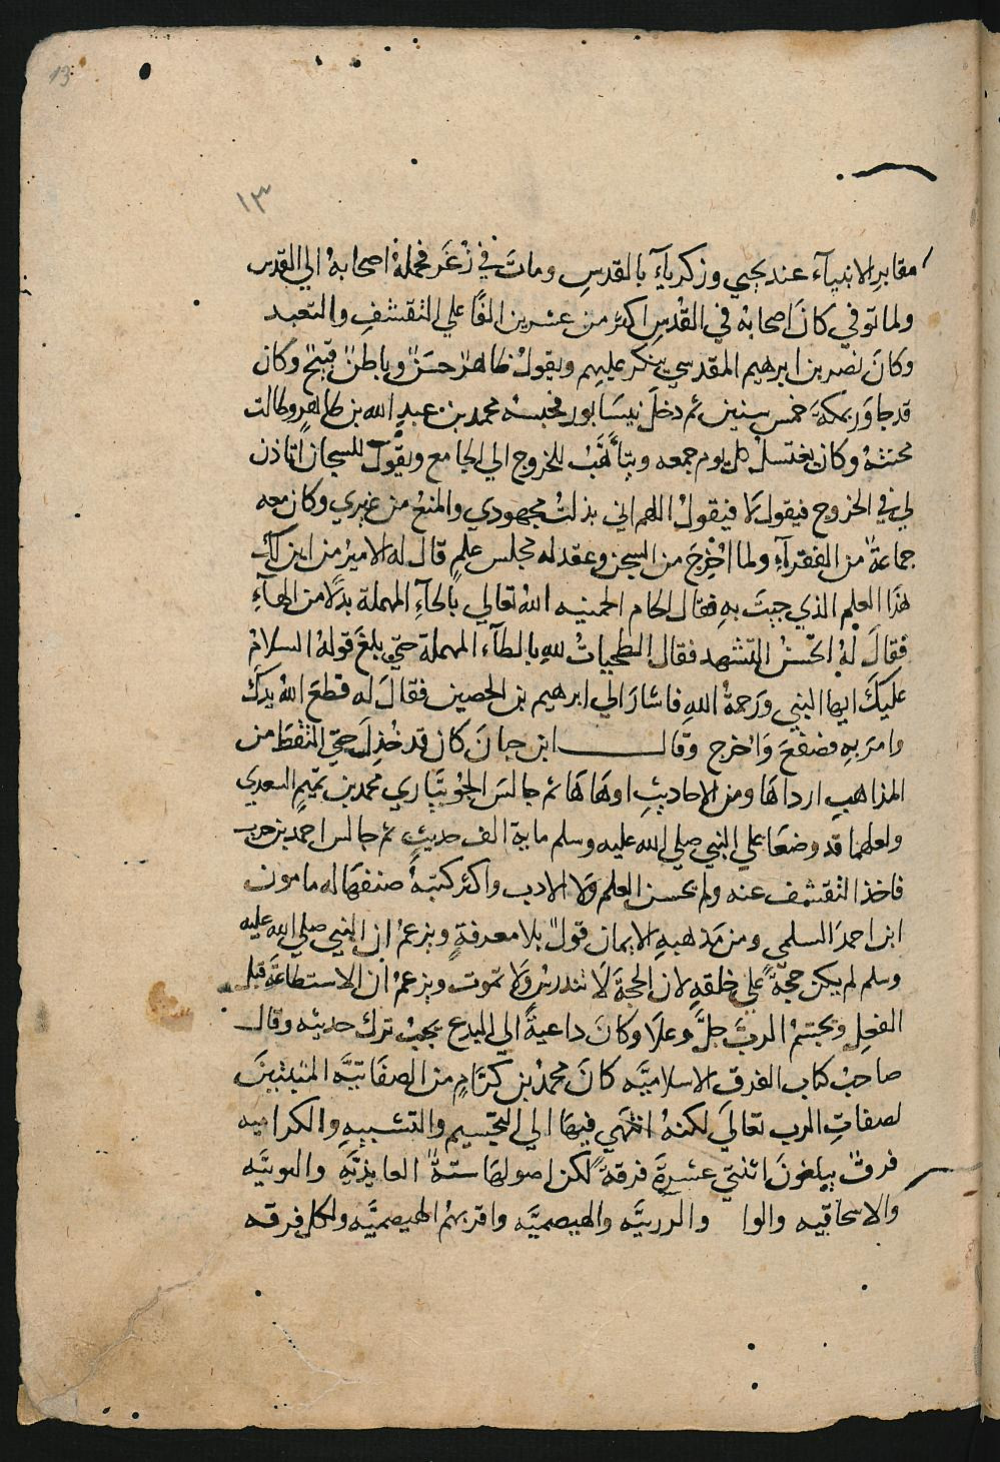 13
١٣
مقابر الانبيآء عند يحيي وزكريآء بالقدس ومات في زُغَر فحمله اصحابه الي القدس
ولما توفي كان اصحابه في القدس اكثر من عشرين الفًا علي التقشف والتعبد
وكان نصر بن ابرهيم المقدسي ينكر عليهم ويقول ظاهرٌ حسنٌ وباطنٌ قبيحٌ وكان
قد جاور بمكة خمس سنين ثم دخل نيسابور فحبسه محمد بن عبد الله بن طاهر وطالت
محنته وكان يغتسل كل يوم جمعه ويتأهب للخروج الي الجامع ويقول للسجان اتاذن
لي في الخروج فيقول لا فيقول اللهم اني بذلت مجهودي والمنع من غيري وكان معه
جماعةٌ من الفقرآء ولما اُخْرِجَ من السجن وعقد له مجلس علمٍ قال له الامير من اين لك
هذا العلم الذي جيت به فقال الحام الحمنيه الله تعالي بالحآء المهملة بدلًا من الهآء
فقال له اتحسن التشهد فقال الطحيات لله بالطآء المهملة حتي بلغ قوله السلام
عليك ايها النبي ورحمة الله فاشار الي ابرهيم بن الحصين فقال له قطع الله يدك
وامر به فصفع واُخرج وقال ابن حبان كان قد خُذِلَ حتي التقط من
المذاهب ارداها ومن الاحاديث اوهاها ثم جالس الجُوَيْبَاري محمد بن تميم السعدي
ولعلهما قد وضعا علي النبي صلي الله عليه وسلم ماية الف حديثٍ ثم جالس احمد بن حرب
فاخذ التقشف عنه ولم يحسن العلم ولا الادب واكثر كتبه صنفها له مامون
ابن احمد السلمي ومن مذهبه الايمان قولٌ بلا معرفةٍ ويزعم ان النبي صلي الله عليه
وسلم لم يكن حجةً علي خلقه لان الحجة لا تندرس ولا تموت ويزعم ان الاستطاعة قبل
الفعل ويجسم الرب جلَّ وعلا وكان داعيةً الي البدع يجب ترك حديثه وقال
صاحب كتاب الفرق الاسلاميَّه كان محمد بن كرَّامٍ من الصفاتيَّه المثبتين
لصفات الرب تعالي لكنه انتهي فيها الي التجسيم والتشبيه والكراميه
فرقٌ يبلغون اثنتي عشرة فرقةً لكن اصولها ستةٌ العابذيَّه والنونيَّه
والاسحاقيه والوا والرزييَّه والهيصميَّه واقربهم الهيصميَّه ولكل فرقه